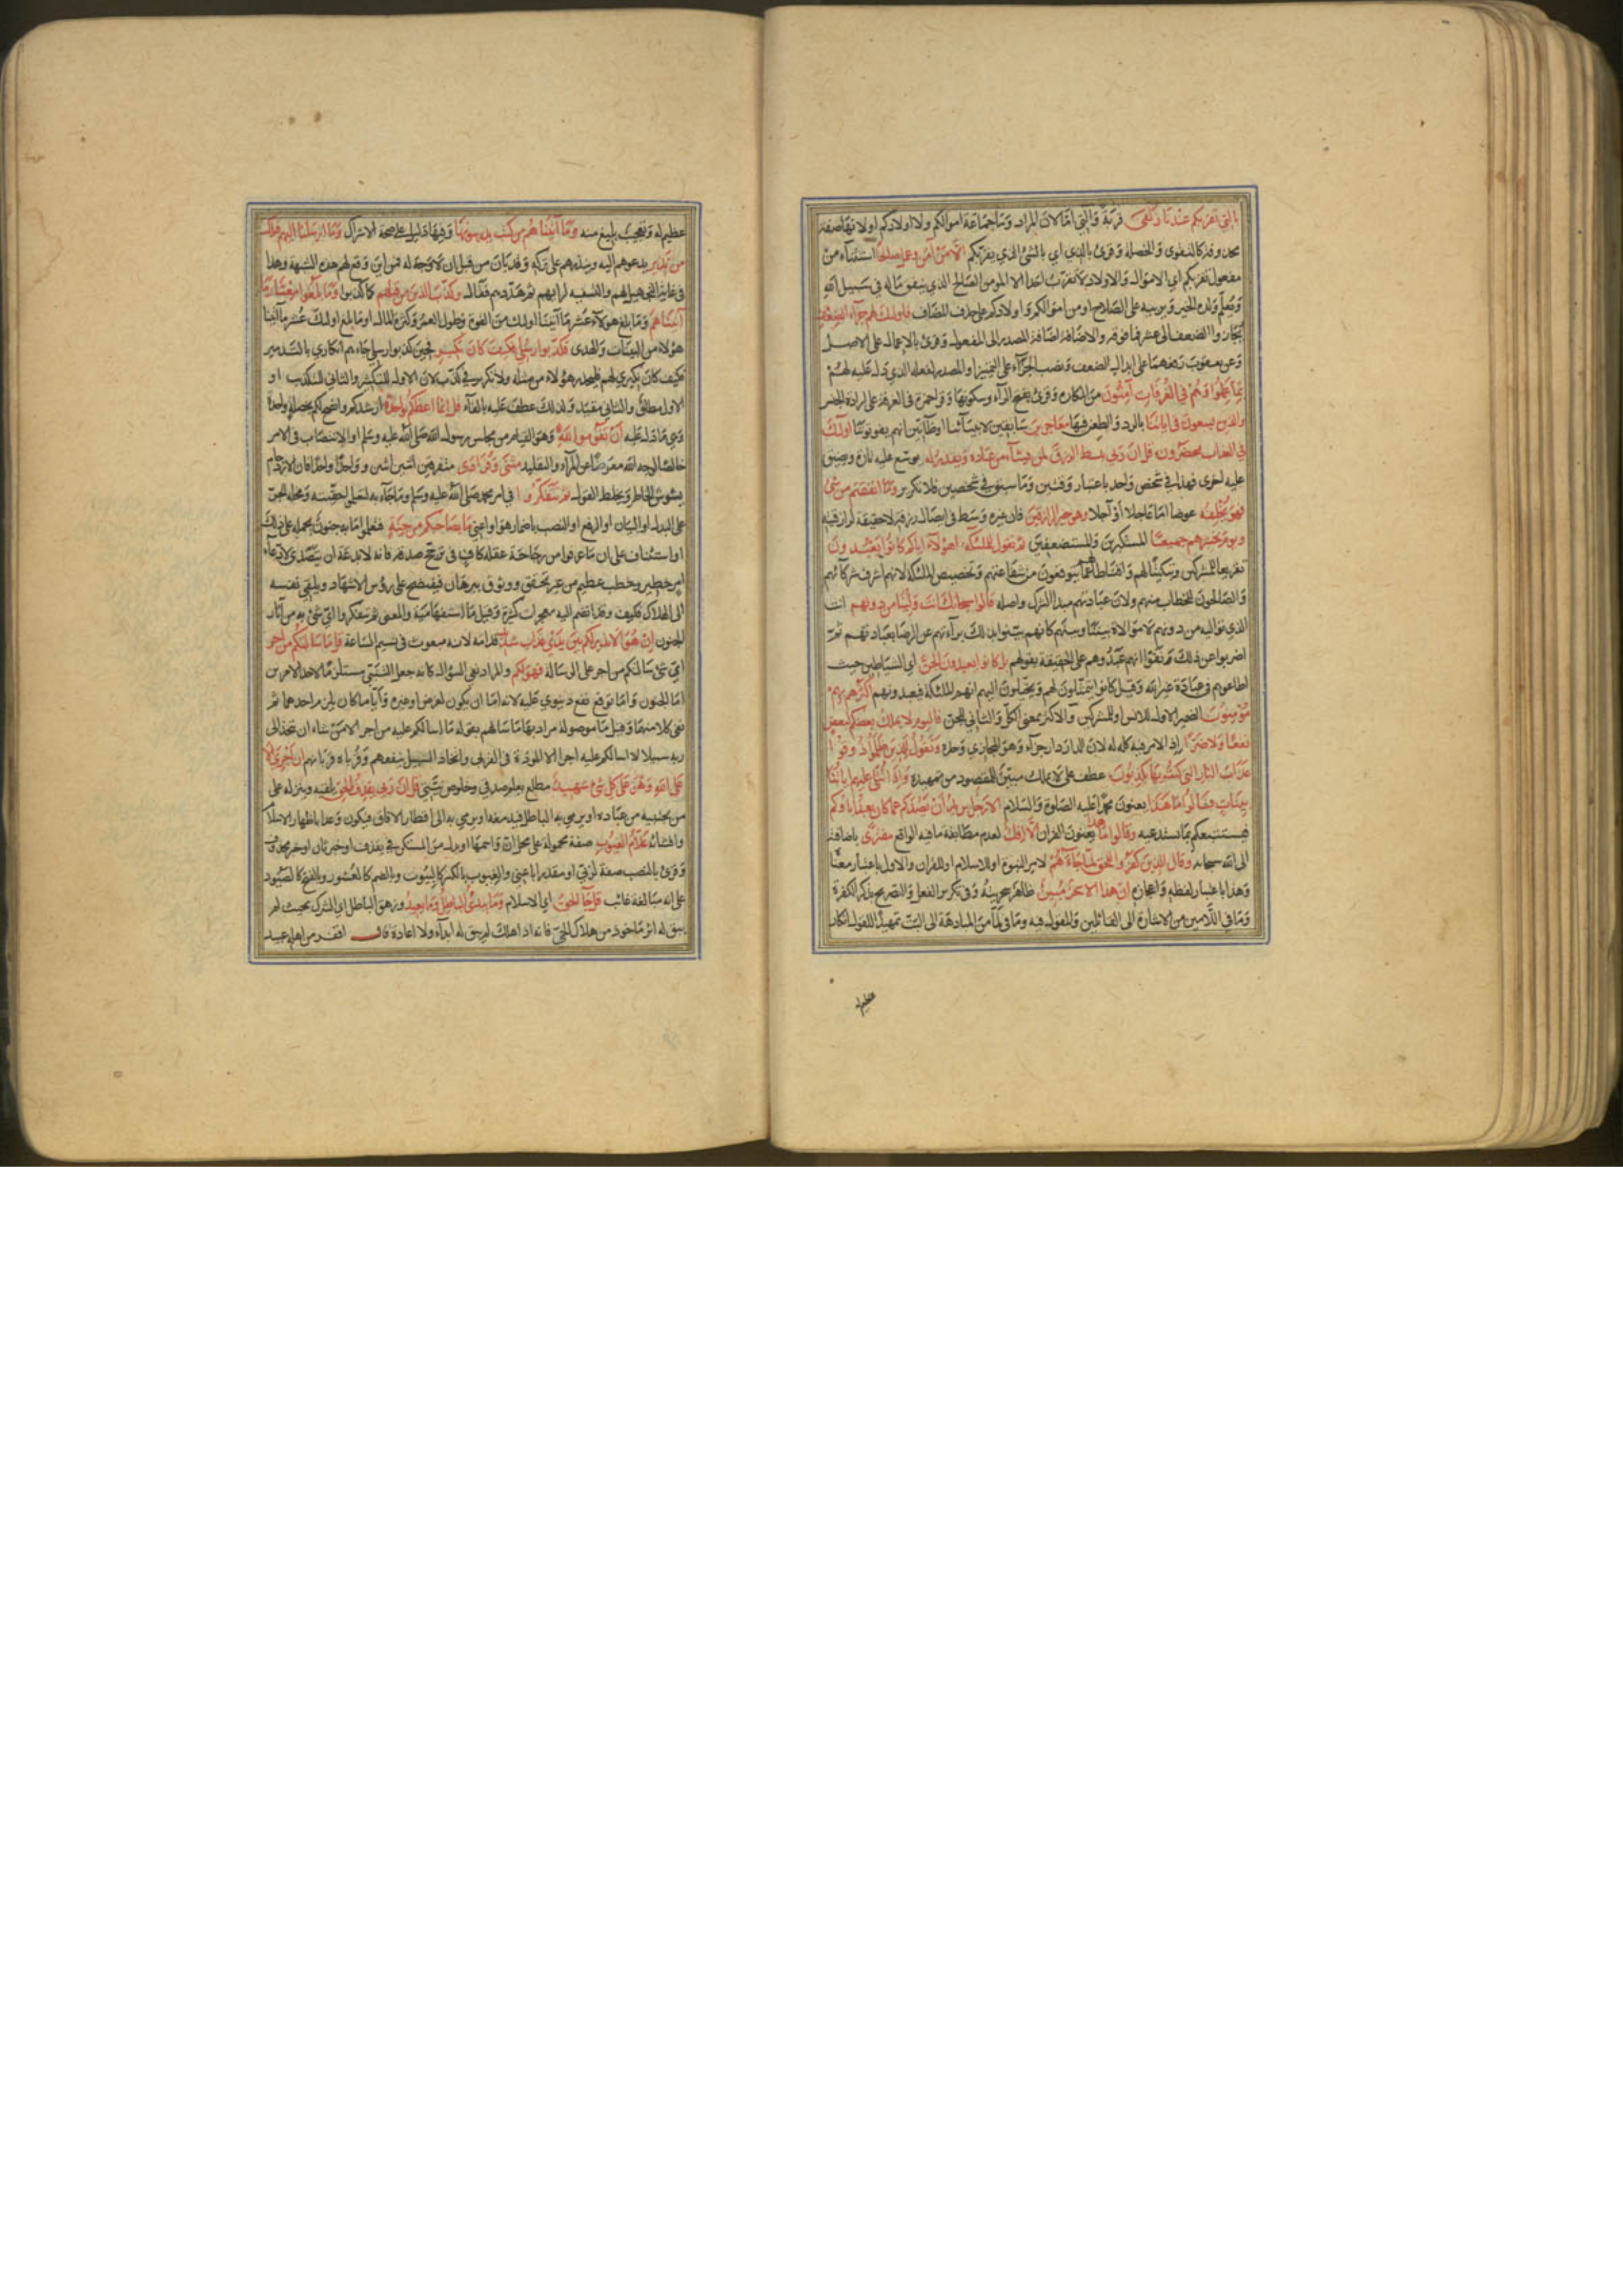 بالتي تقربكم عندنا زلفى قربة والتي اما لان المراد وما جماعة اموالكم ولا اولادكم او لانها صفة
محذوف كالتقوى والخصلة وقرئ بالذي اي بالشئ الذي يقربكم الا من آمن وعمل صالحا استثناء من
مفعول تقربكم اي الاموال والاولاد لا تقرب احدا الا المومن الصالح الذي ينفق ماله في سبيل الله
ويعلم ولده الخير ويربيه على الصلاح او من اموالكم واولادكم على حذف المضاف فاولئك لهم جزاء الضعف
يجازوا الضعف الى عشر فما فوقه والاضافة اضافة المصدر الى المفعول وقرئ بالاعمال على الاصل
وعن يعقوب رفعهما على ابدال الضعف ونصب الجزاء على التمييز او المصدر لفعله الذي دل عليه لهم
بما عملوا وهم في الغرفات آمنون من المكاره وقرئ بفتح الراء وسكونها وقرا حمزة في الغرفة على ارادة الجنس
والذين يسعون في اياتنا بالرد والطعن فيها معاجزين سابقين لانبيائنا او ظانين انهم يفوتوننا اولئك
في العذاب محضرون قل ان ربي يبسط الرزق لمن يشآء من عباده ويقدر له يوسع عليه تارة ويضيق
عليه اخرى فهذا في شخص واحد باعتبار وقتين وما سبق في شخصين فلا تكرير وما انفقتم من شئ
فهو يخلفه عوضا اما عاجلا او آجلا وهو خير الرازقين فان غيره وسط في ايصال رزقه لا حقيقة لرازقيته
ويوم نحشرهم جميعا المستكبرين والمستضعفين ثم نقول للملئكة اهؤلاء اياكم كانوا يعبدون
تقريعا للمشركين وتبكيتا لهم واقناطا عما يتوقعون من شفاعتهم وتخصيص الملئكة لانهم اشرف شركائهم
والصالحون للخطاب منهم ولان عبادتهم مبدأ الشرك واصله قالوا سبحانك انت ولينا من دونهم انت
الذي نواليه من دونهم لا موالاة بيننا وبينهم كانهم بينوا بذلك براءتهم عن الرضا بعبادتهم ثم
اضربوا عن ذلك ونفوا انهم عبدوهم على الحقيقة بقولهم بل كانوا يعبدون الجن اي الشياطين حيث
اطاعوهم في عبادة غير الله وقيل كانوا يتمثلون لهم ويخيلون اليهم انهم الملئكة فيعبدونهم اكثرهم بهم
مؤمنون الضمير الاول للانس او للمشركين والاكثر بمعنى الكل والثاني للجن فاليوم لا يملك بعضكم لبعض
نفعا ولا ضرا اذ الامر فيه كله له لان الدار دار جزاء وهو المجازي وحده ونقول للذين ظلموا ذوقوا
عذاب النار التي كنتم بها تكذبون عطف على لا يملك مبين للمقصود من تمهيده واذا تتلى عليهم اياتنا
بينات قالوا ما هذا يعنون محمدا عليه الصلوة والسلام الا رجل يريد ان يصدكم عما كان يعبد اباؤكم
فيستتبعكم بما يستبدعه وقالوا ما هذا يعنون القران الا افك لعدم مطابقة ما فيه الواقع مفترى باضافته
الى الله سبحانه وقال الذين كفروا للحق لما جاءهم لامر النبوة او للاسلام او للقران والاول باعتبار معناه
وهذا باعتبار لفظه واعجازه ان هذا الا سحر مبين ظاهر سحريته وفي تكرير الفعل والتصريح بذكر الكفرة
وما في اللامين من الاشارة الى القائلين والمقول فيه وما في لما من المبادهة الى البت تمهيدا للقول انكار
عظيم له
عظيم له وتعجيب بليغ منه وما آتيناهم من كتب يدرسونها وفيها دليل على صحة الاشراك وما ارسلنا اليهم قبلك
من نذير يدعوهم اليه وينذرهم على تركه وقد بان من قبل ان لا وجه له فمن اين وقع لهم هذه الشبهة وهذا
في غاية التجهيل لهم والتسفيه لرايهم ثم هددهم فقال وكذب الذين من قبلهم كما كذبوا وما بلغوا معشار ما
آتيناهم وما بلغ هؤلاء عشر ما آتينا اولئك من القوة وطول العمر وكثرة المال او ما بلغ اولئك عشر ما آتينا
هؤلاء من البينات والهدى فكذبوا رسلي فكيف كان نكير فحين كذبوا رسلي جاءهم انكاري بالتدمير
فكيف كان نكيري لهم فليحذر هؤلاء من مثله ولا تكرير في كذب لان الاول للتكثير والثاني للتكذيب او
الاول مطلق والثاني مقيد ولذلك عطف عليه بالفاء قل انما اعظكم بواحدة ارشدكم وانصح لكم بخصلة واحدة
وهي ما دل عليه ان تقوموا لله وهو القيام من مجلس رسول الله صلى الله عليه وسلم او الانتصاب في الامر
خالصا لوجه الله معرضا عن المراء والتقليد مثنى وفرادى متفرقين اثنين اثنين وواحدا واحدا فان الازدحام
يشوش الخاطر ويخلط القول ثم تتفكروا في امر محمد صلى الله عليه وسلم وما جاء به لتعلموا حقيته ومحله الجر
على البدل او البيان او الرفع او النصب باضمار هو او اعني ما بصاحبكم من جنة فتعلموا ما به جنون يحمله على ذلك
او استئناف على ان ما عرفوا من رجاحة عقله كاف في ترجح صدقه فانه لا يدعه ان يتصدى لادعاء
امر خطير وخطب عظيم من غير تحقق ووثوق ببرهان فيفتضح على رؤس الاشهاد ويلقي نفسه
الى الهلاك فكيف وقد انضم اليه معجزات كثيرة وقيل ما استفهامية والمعنى ثم تتفكروا اي شئ به من آثار
الجنون ان هو الا نذير لكم بين يدي عذاب شديد قدامه لانه مبعوث في نسيم الساعة قل ما سالتكم من اجر
اي شئ سالتكم من اجر على الرسالة فهو لكم والمراد نفي السؤال كانه جعل التنبي مستلزما لاحد الامرين
اما الجنون واما توقع نفع دنيوي عليه لانه اما ان يكون لغرض او غيره وايا ما كان يلزم احدهما ثم
نفى كلا منهما وقيل ما موصولة مراد بها ما سالهم بقوله ما اسالكم عليه من اجر الا من شاء ان يتخذ الى
ربه سبيلا لا اسالكم عليه اجرا الا المودة في القربى واتخاذ السبيل ينفعهم وقرباه قرباهم ان اجري الا
على الله وهو على كل شئ شهيد مطلع يعلم صدقي وخلوص نيتي قل ان ربي يقذف بالحق يلقيه وينزله على
من يجتبيه من عباده او يرمي به الباطل فيدمغه او يرمي به الى اقطار الافاق فيكون وعدا باظهار الاسلام
وافشائه علام الغيوب صفة محمولة على محل ان واسمها او بدل من المستكن في يقذف او خبر ثان او خبر محذوف
وقرئ بالنصب صفة لربي او مقدرا باعني والغيوب بالكسر كالبيوت وبالضم كالعشور وبالفتح كالصيود
على انه مبالغة غائب قل جآء الحق اي الاسلام وما يبدئ الباطل وما يعيد وزهق الباطل اي الشرك بحيث لم
يبق له اثر ماخوذ من هلاك الحي فانه اذا هلك لم يبق له ابداء ولا اعادة قال اقفر من اهله عبيد